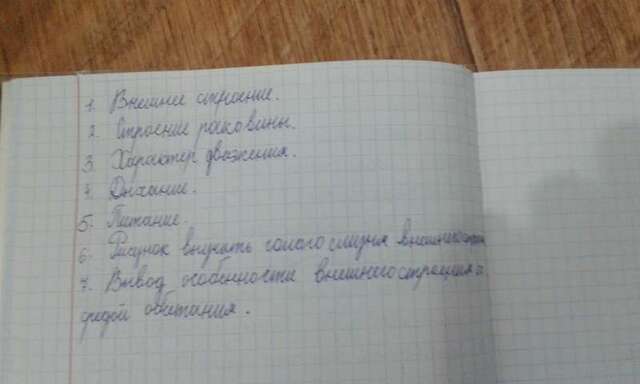 1. Внешнее строение.
2. Строение раковины.
3. Характер движения.
4. Дыхание.
5. Питание.
6. Рисунок голого слизня внешнего
7. Вывод особенности внешнего строения
средой обитания.